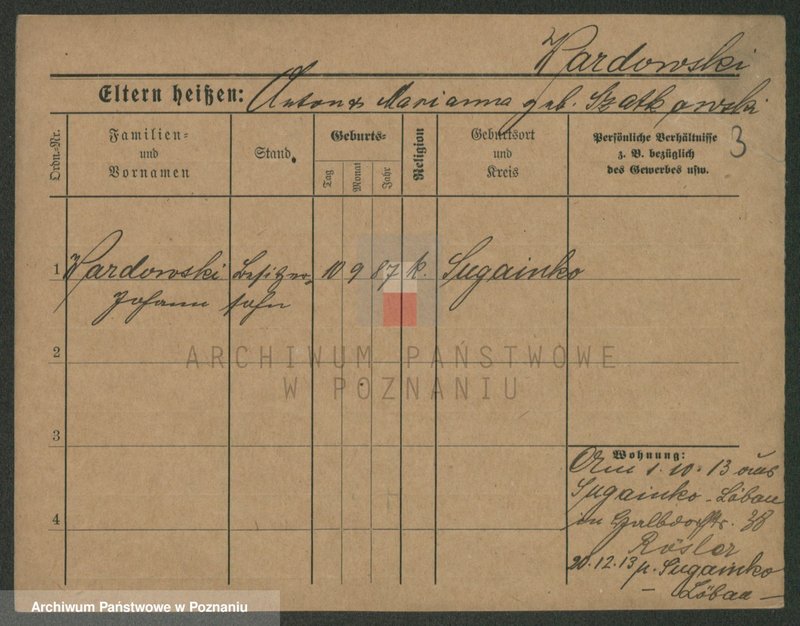 Wardowski
Eltern heißen: Anton & Marianna geb. Szatkowski
3
Ordn.-Nr.
Familien- und Vornamen
Stand.
Geburts-
Tag
Monat
Jahr
Religion
Geburtsort und Kreis
Persönliche Verhältnisse
z. B. bezüglich
des Gewerbes usw.
1 Wardowski Besitzer- 10 9 87 k. Sugainko
Johann sohn
2
ARCHIWUM PAŃSTWOWE
W POZNANIU
3
Wohnung:
Am 1.10.13 aus
Sugainko - Löbau
in 38
Rösler
4
20.12.13 n. Sugainko
- Löbau -
Archiwum Państwowe w Poznaniu